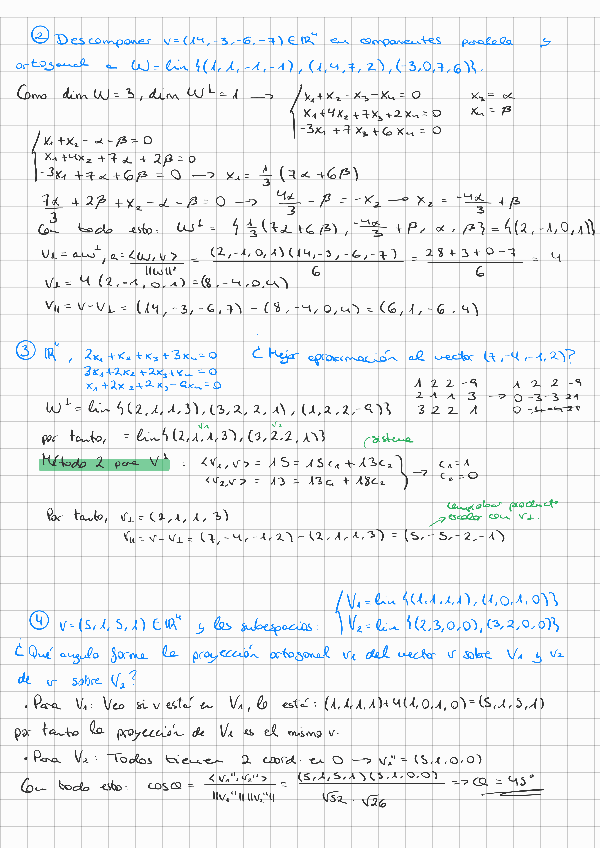 ② Descomponer v=(14,-3,-6,-7) ∈ ℝ⁴ en componentes paralela y
ortogonal a W=lin{(1,1,-1,-1), (1,4,7,2), (-3,0,7,6)}.
Como dim W=3, dim W^⊥=1 → { x₁+x₂-x₃-x₄=0   x₃=α
x₁+4x₂+7x₃+2x₄=0   x₄=β
-3x₁+7x₃+6x₄=0
{ x₁+x₂-α-β=0
x₁+4x₂+7α+2β=0
-3x₁+7α+6β=0 → x₁=1/3 (7α+6β)
7α/3+2β+x₂-α-β=0 → 4α/3-β=-x₂ → x₂=-4α/3+β
Con todo esto: W^⊥={1/3(7α+6β), -4α/3+β, α, β}={(2,-1,0,1)}
V⊥=aw^⊥, a=<w,v>/||w||²=(2,-1,0,1)(14,-3,-6,-7)/6=28+3+0-7/6=4
V⊥=4(2,-1,0,1)=(8,-4,0,4)
V∥=V-V⊥=(14,-3,-6,7)-(8,-4,0,4)=(6,1,-6,4)
③ ℝ⁴, 2x₁+x₂+x₃+3x₄=0   ¿Mejor aproximación al vector (7,-4,-1,2)?
3x₁+2x₂+2x₃+x₄=0
x₁+2x₂+2x₃-9x₄=0
1 2 2 -9   1 2 2 -9
2 1 1 3 → 0 -3 -3 21
3 2 2 1
W^⊥=lin{(2,1,1,3), (3,2,2,1), (1,2,2,-9)}
por tanto, =lin{(2,1,1,3), (3,2,2,1)}
v₁ v₂
sistema
Método 2 para V^⊥: <v₁,v>=15=15c₁+13c₂ } → c₁=1
<v₂,v>=13=13c₁+18c₂   c₂=0
comprobar producto
escalar con V⊥.
Por tanto, V⊥=(2,1,1,3)
V∥=V-V⊥=(7,-4,-1,2)-(2,1,1,3)=(5,-5,-2,-1)
④ v=(5,1,5,1) ∈ ℝ⁴ y los subespacios: { V₁=lin{(1,1,1,1), (1,0,1,0)}
V₂=lin{(2,3,0,0), (3,2,0,0)}
¿Qué angulo forma la proyección ortogonal v₁ del vector v sobre V₁ y v₂
de v sobre V₂?
· Para V₁: Veo si v está en V₁, lo está: (1,1,1,1)+4(1,0,1,0)=(5,1,5,1)
por tanto la proyección de V₁ es el mismo v.
· Para V₂: Todos tienen 2 coord. en 0 → v₂''=(5,1,0,0)
Con todo esto: cosα=<v₁'',v₂''>/||v₁''||||v₂''||=(5,1,5,1)(5,1,0,0)/√52·√26 ⇒ α=45°